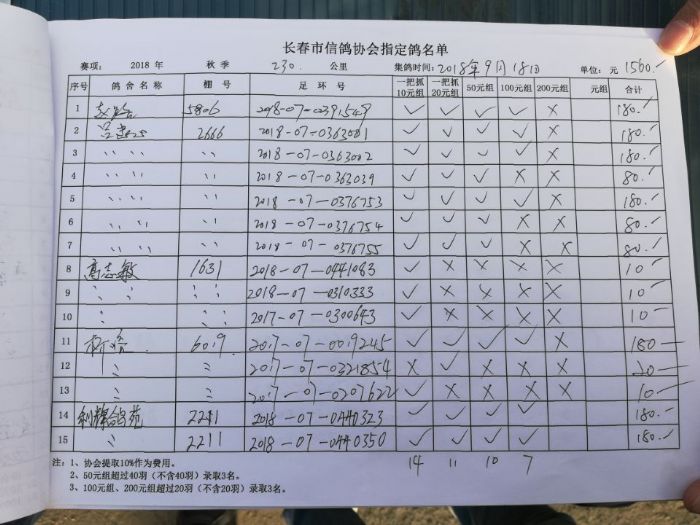 长春市信鸽协会指定鸽名单
赛项: 2018 年 秋 季 230 公里 集鸽时间: 2018年9月18日 单位: 元 1560.-
序号 鸽舍名称 棚号 足环号 一把抓10元组 一把抓20元组 50元组 100元组 200元组 元组 合计
1 5806 2018-07-0391549 ✓ ✓ ✓ ✓ × 180.-
2 2666 2018-07-0363081 ✓ ✓ ✓ ✓ × 180.-
3 〃 〃 〃 2018-07-0363002 ✓ ✓ ✓ ✓ × 180.-
4 〃 〃 〃 2018-07-0363039 ✓ ✓ ✓ × × 80.-
5 〃 〃 〃 2018-07-0376753 ✓ ✓ ✓ ✓ × 180.-
6 〃 〃 〃 2018-07-0376754 ✓ ✓ ✓ × × 80.-
7 〃 〃 〃 2018-07-0376755 ✓ ✓ ✓ × × 80.-
8 高志敏 1631 2018-07-0441083 ✓ × × × × 10-
9 〃 〃 〃 2018-07-0310333 ✓ × × × × 10-
10 〃 〃 〃 2017-07-0300643 ✓ × × × × 10-
11 6019 2017-07-0019245 ✓ ✓ ✓ ✓ × 180-
12 〃 〃 2017-07-0321854 × ✓ × × × 20-
13 〃 〃 2017-07-0207622 ✓ × × × × 10-
14 利辉鸽苑 2211 2018-07-0440323 ✓ ✓ ✓ ✓ 180.-
15 〃 2211 2018-07-0440350 ✓ ✓ ✓ ✓ 180.-
14 11 10 7
注: 1、协会提取10%作为费用。
2、50元组超过40羽(不含40羽)录取3名。
3、100元、200元组超过20羽(不含20羽)录取3名。